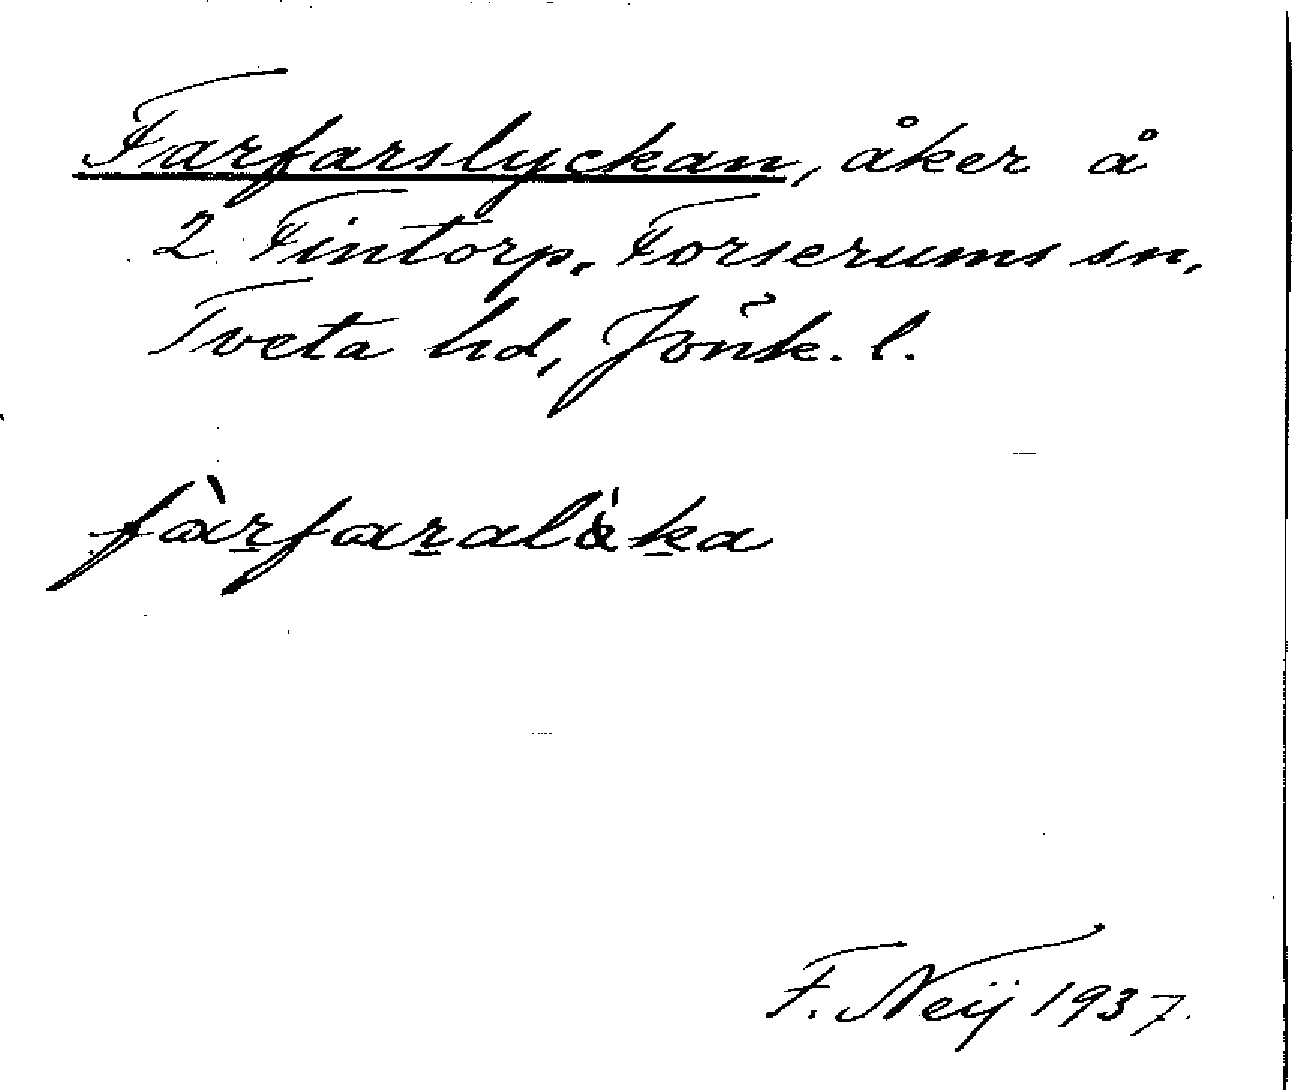 Farfarslyckan, åker å
2 Fintorp, Forserums sn,
Tveta hd, Jönk. l.
fàrfaralöka
F. Neij 1937.